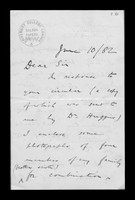 June 10/82
Dear Sir
In response to
your circular (a copy
of which was sent to
me by Dr Huggins)
I enclose some
photographs of four
members of my family
for combination.